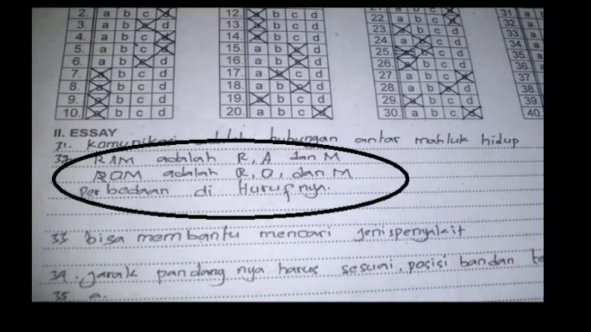 2. a b c d 12. a b c d 22. a b c d 31. a
3. a b c d 13. a b c d 23. a b c d 32. a
4. a b c d 14. a b c d 24. a b c d 33. a
5. a b c d 15. a b c d 25. a b c d 34. a
6. a b c d 16. a b c d 26. a b c d 35.
7. a b c d 17. a b c d 27. a b c d 36.
8. a b c d 18. a b c d 28. a b c d 37.
9. a b c d 19. a b c d 29. a b c d 38.
10. a b c d 20. a b c d 30. a b c d 39.
40.
II. ESSAY
31. komunikasi adalah hubungan antar mahluk hidup
32. RAM adalah R, A dan M
ROM adalah R, O, dan M
Perbedaan di Hurufnya.
33 bisa membantu mencari jenispenyakit
34. jarak pandang nya harus sesuai, posisi bandan
35 a.